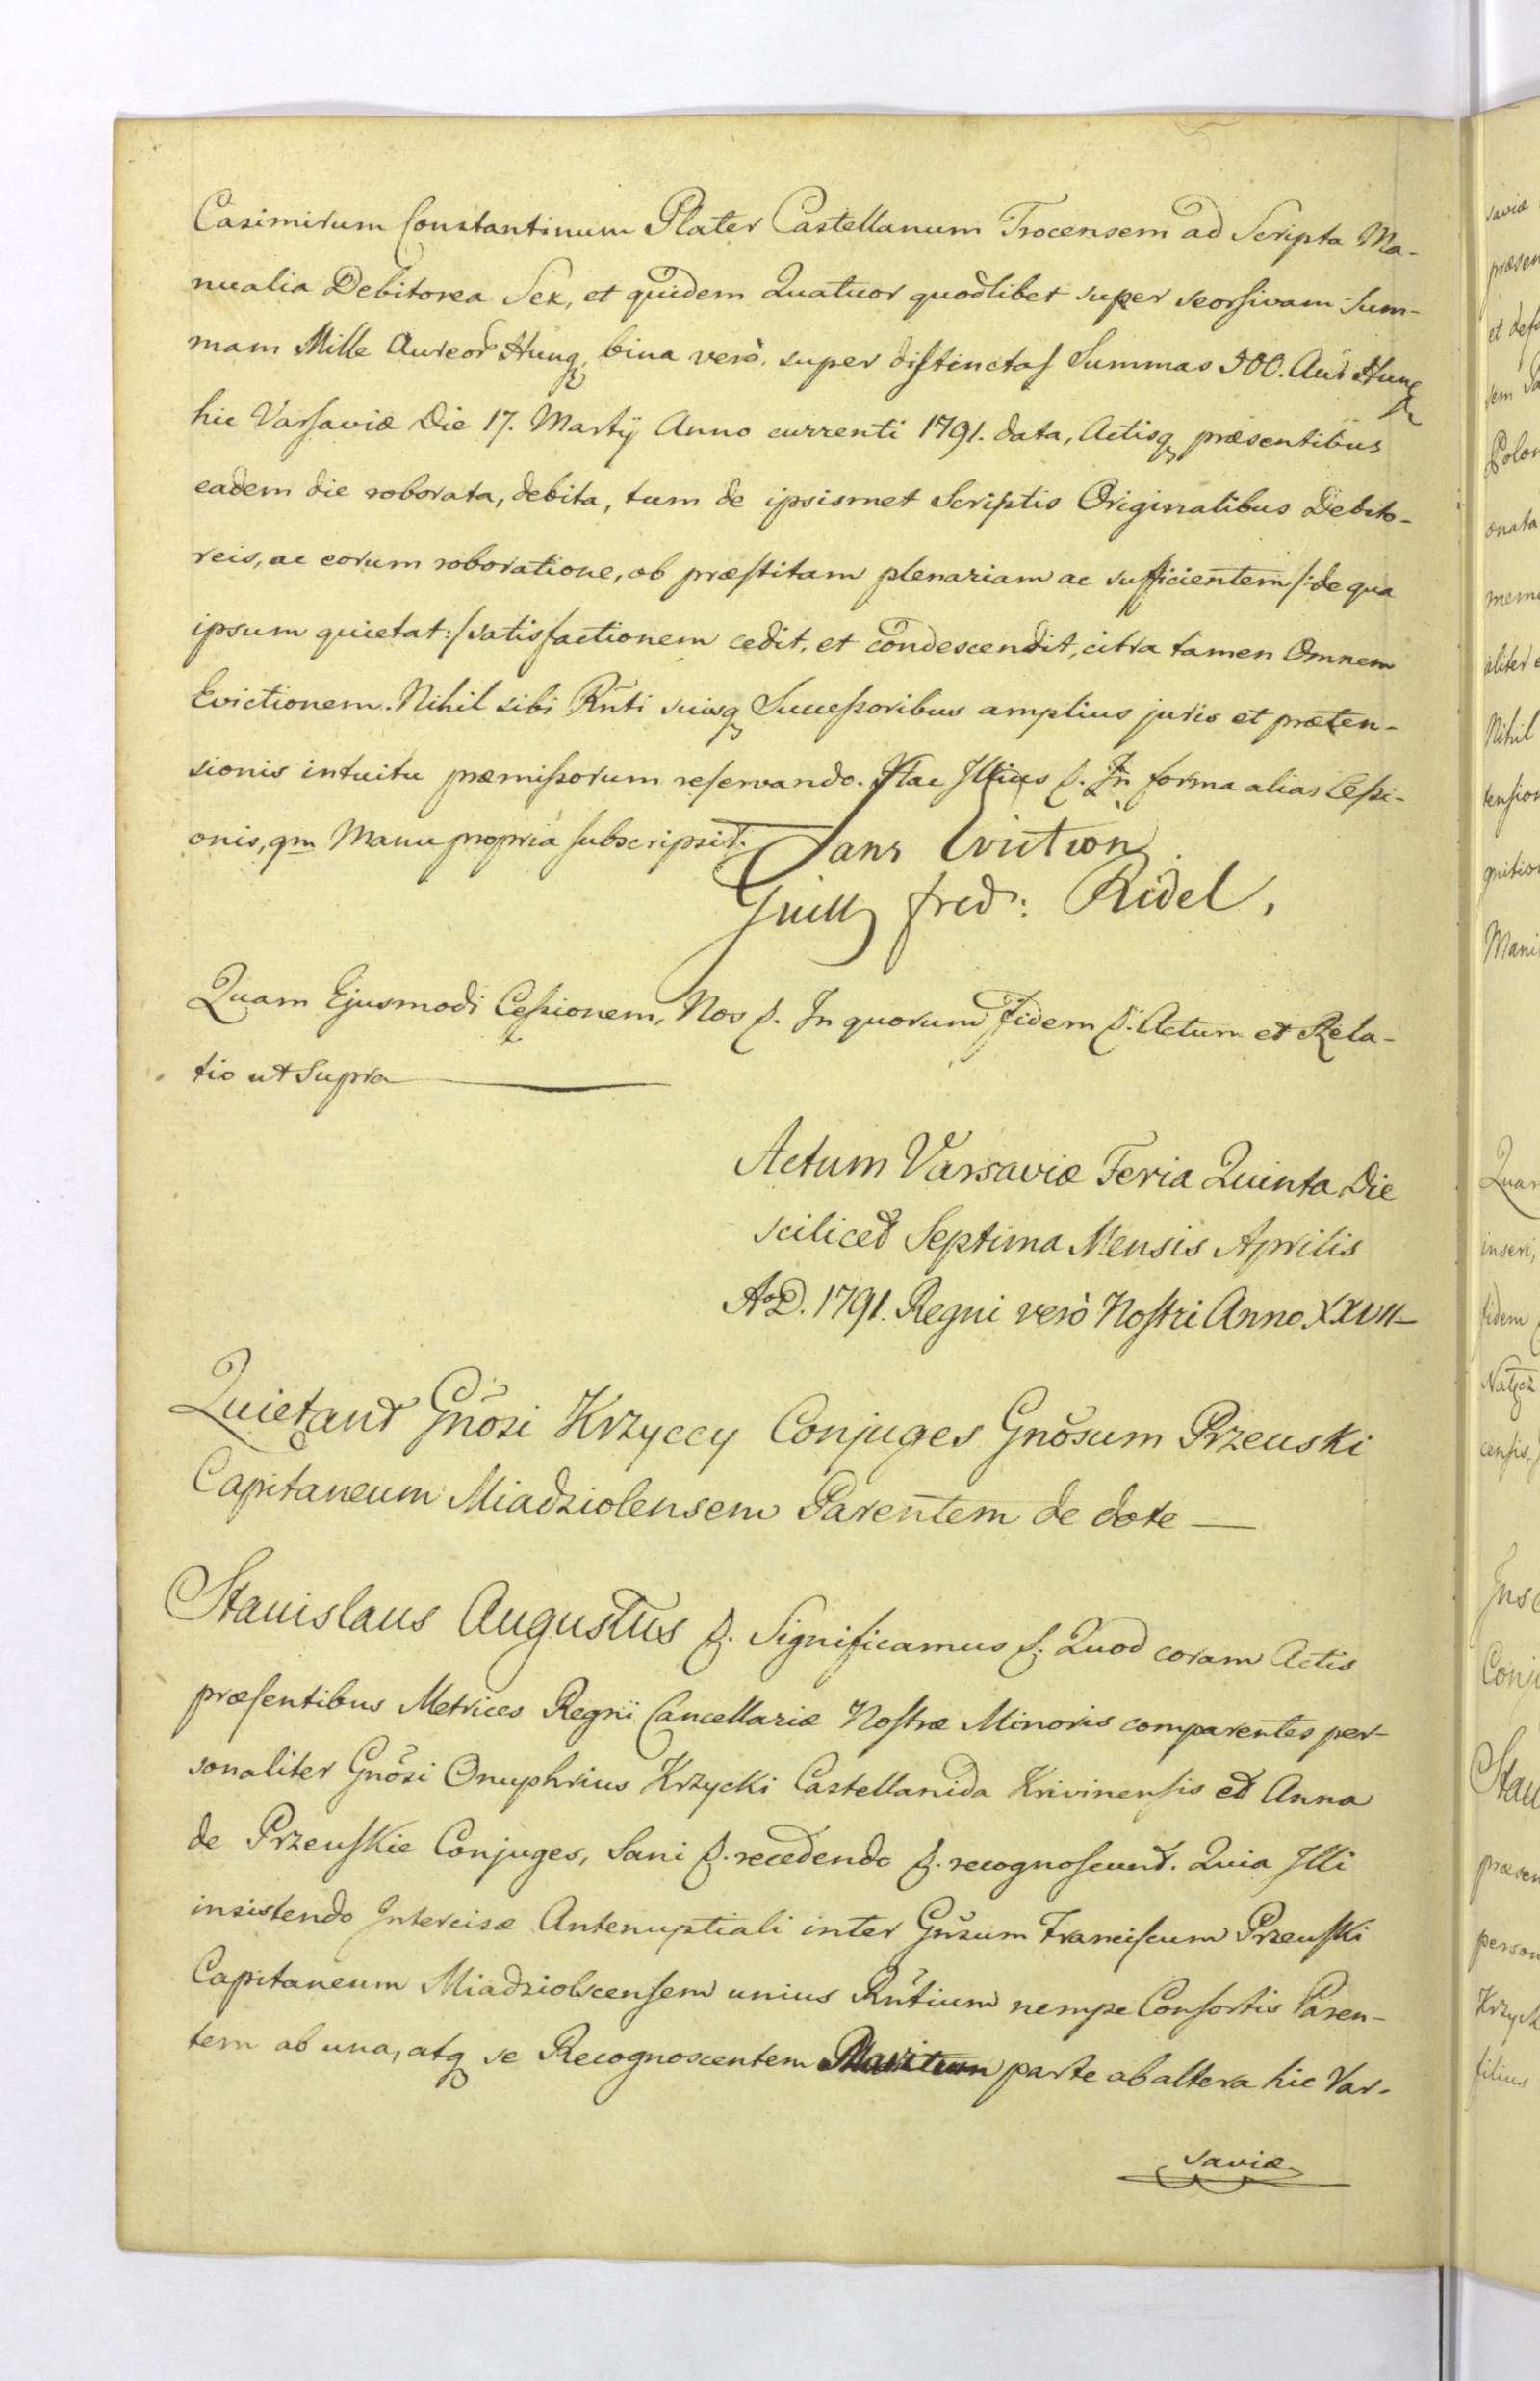 Casimirum Constantinum Plater Castellanum Trocensem ad Scripta Ma-
nualia Debitorea Sex, et quidem Quatuor quodlibet super seorsivam Sum-
mam Mille Aureor Hung, bina verò super distinctas Summas 500. Aur Hung
hic Varsaviæ Die 17. Martÿ Anno currenti 1791. data, Actisq præsentibus
eadem die roborata, debita, tum de ipsismet Scriptis Originalibus Debito-
reis, ac eorum roboratione, ob præstitam plenariam ac sufficientem /: de qua
ipsum quietat :/ satisfactionem cedit, et condescendit, citra tamen Omnem
Evictionem. Nihil sibi Rñti suisq Successoribus amplius juris et præten-
sionis intuitu præmissorum reservando. Hac Illius p. In forma alias Cessi-
onis, qm Manu propria subscripsit. Sans Eviction
Guill fred: Ridel.
Quam Ejusmodi Cessionem, Nos p. In quorum Fidem p. Actum et Rela-
tio ut Supra
Actum Varsaviæ Feria Quinta Die
scilicet Septima Mensis Aprilis
AoD. 1791. Regni verò Nostri Anno XXVII
Quietant Gnõsi Krzyccy Conjuges Gnõsum Przeuski
Capitaneum Miadziolensem Parentem de dote
Stanislaus Augustus p. Significamus p. Quod coram Actis
præsentibus Metrices Regni Cancellariæ Nostræ Minoris comparentes per-
sonaliter Gnõsi Onuphrius Krzycki Castellanida Krivinensis et Anna
de Przeuskie Conjuges, Sani p. recedendo p. recognoscunt. Quia Illi
insistendo Intercisæ Antenuptiali inter Gñsum Franciscum Przeuski
Capitaneum Miadziolscensem unius Rñtium nempe Consortis Paren-
tem ab una, atq se Recognoscentem Maritum parte ab altera hic Var-
saviæ